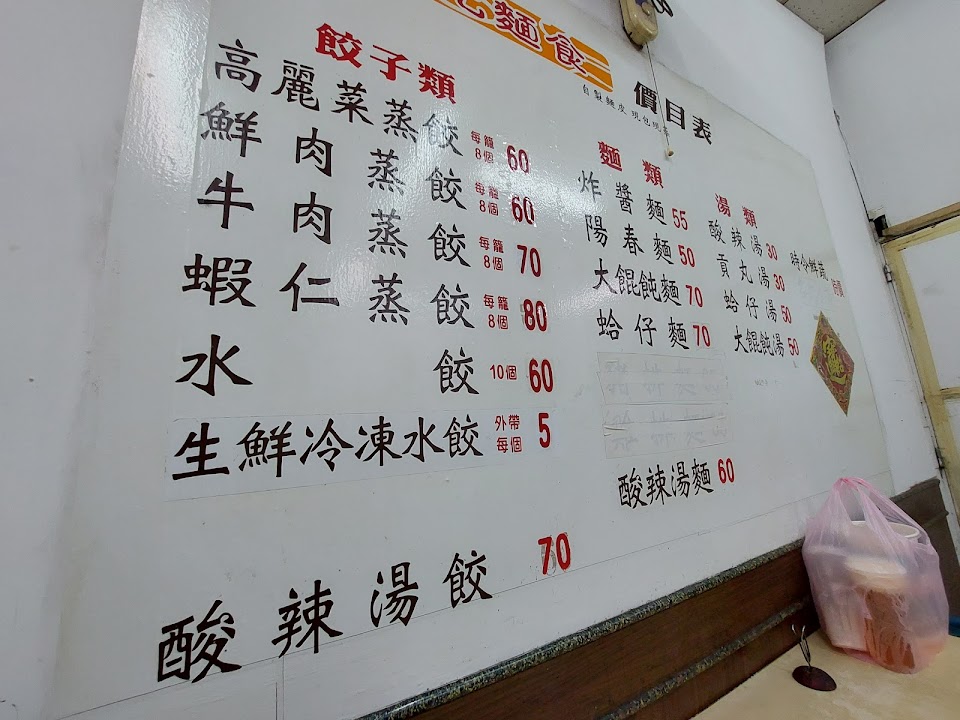 麵食
價目表
自製麵皮 現包現
餃子類
高麗菜蒸餃 每籠8個 60
鮮肉蒸餃 每籠8個 60
牛肉蒸餃 每籠8個 70
蝦仁蒸餃 每籠8個 80
水餃 10個 60
生鮮冷凍水餃 外帶每個 5
酸辣湯餃 70
麵類
炸醬麵 55
陽春麵 50
大餛飩麵 70
蛤仔麵 70
酸辣湯麵 60
湯類
酸辣湯 30
貢丸湯 30
蛤仔湯 50
大餛飩湯 50
時令鮮蔬